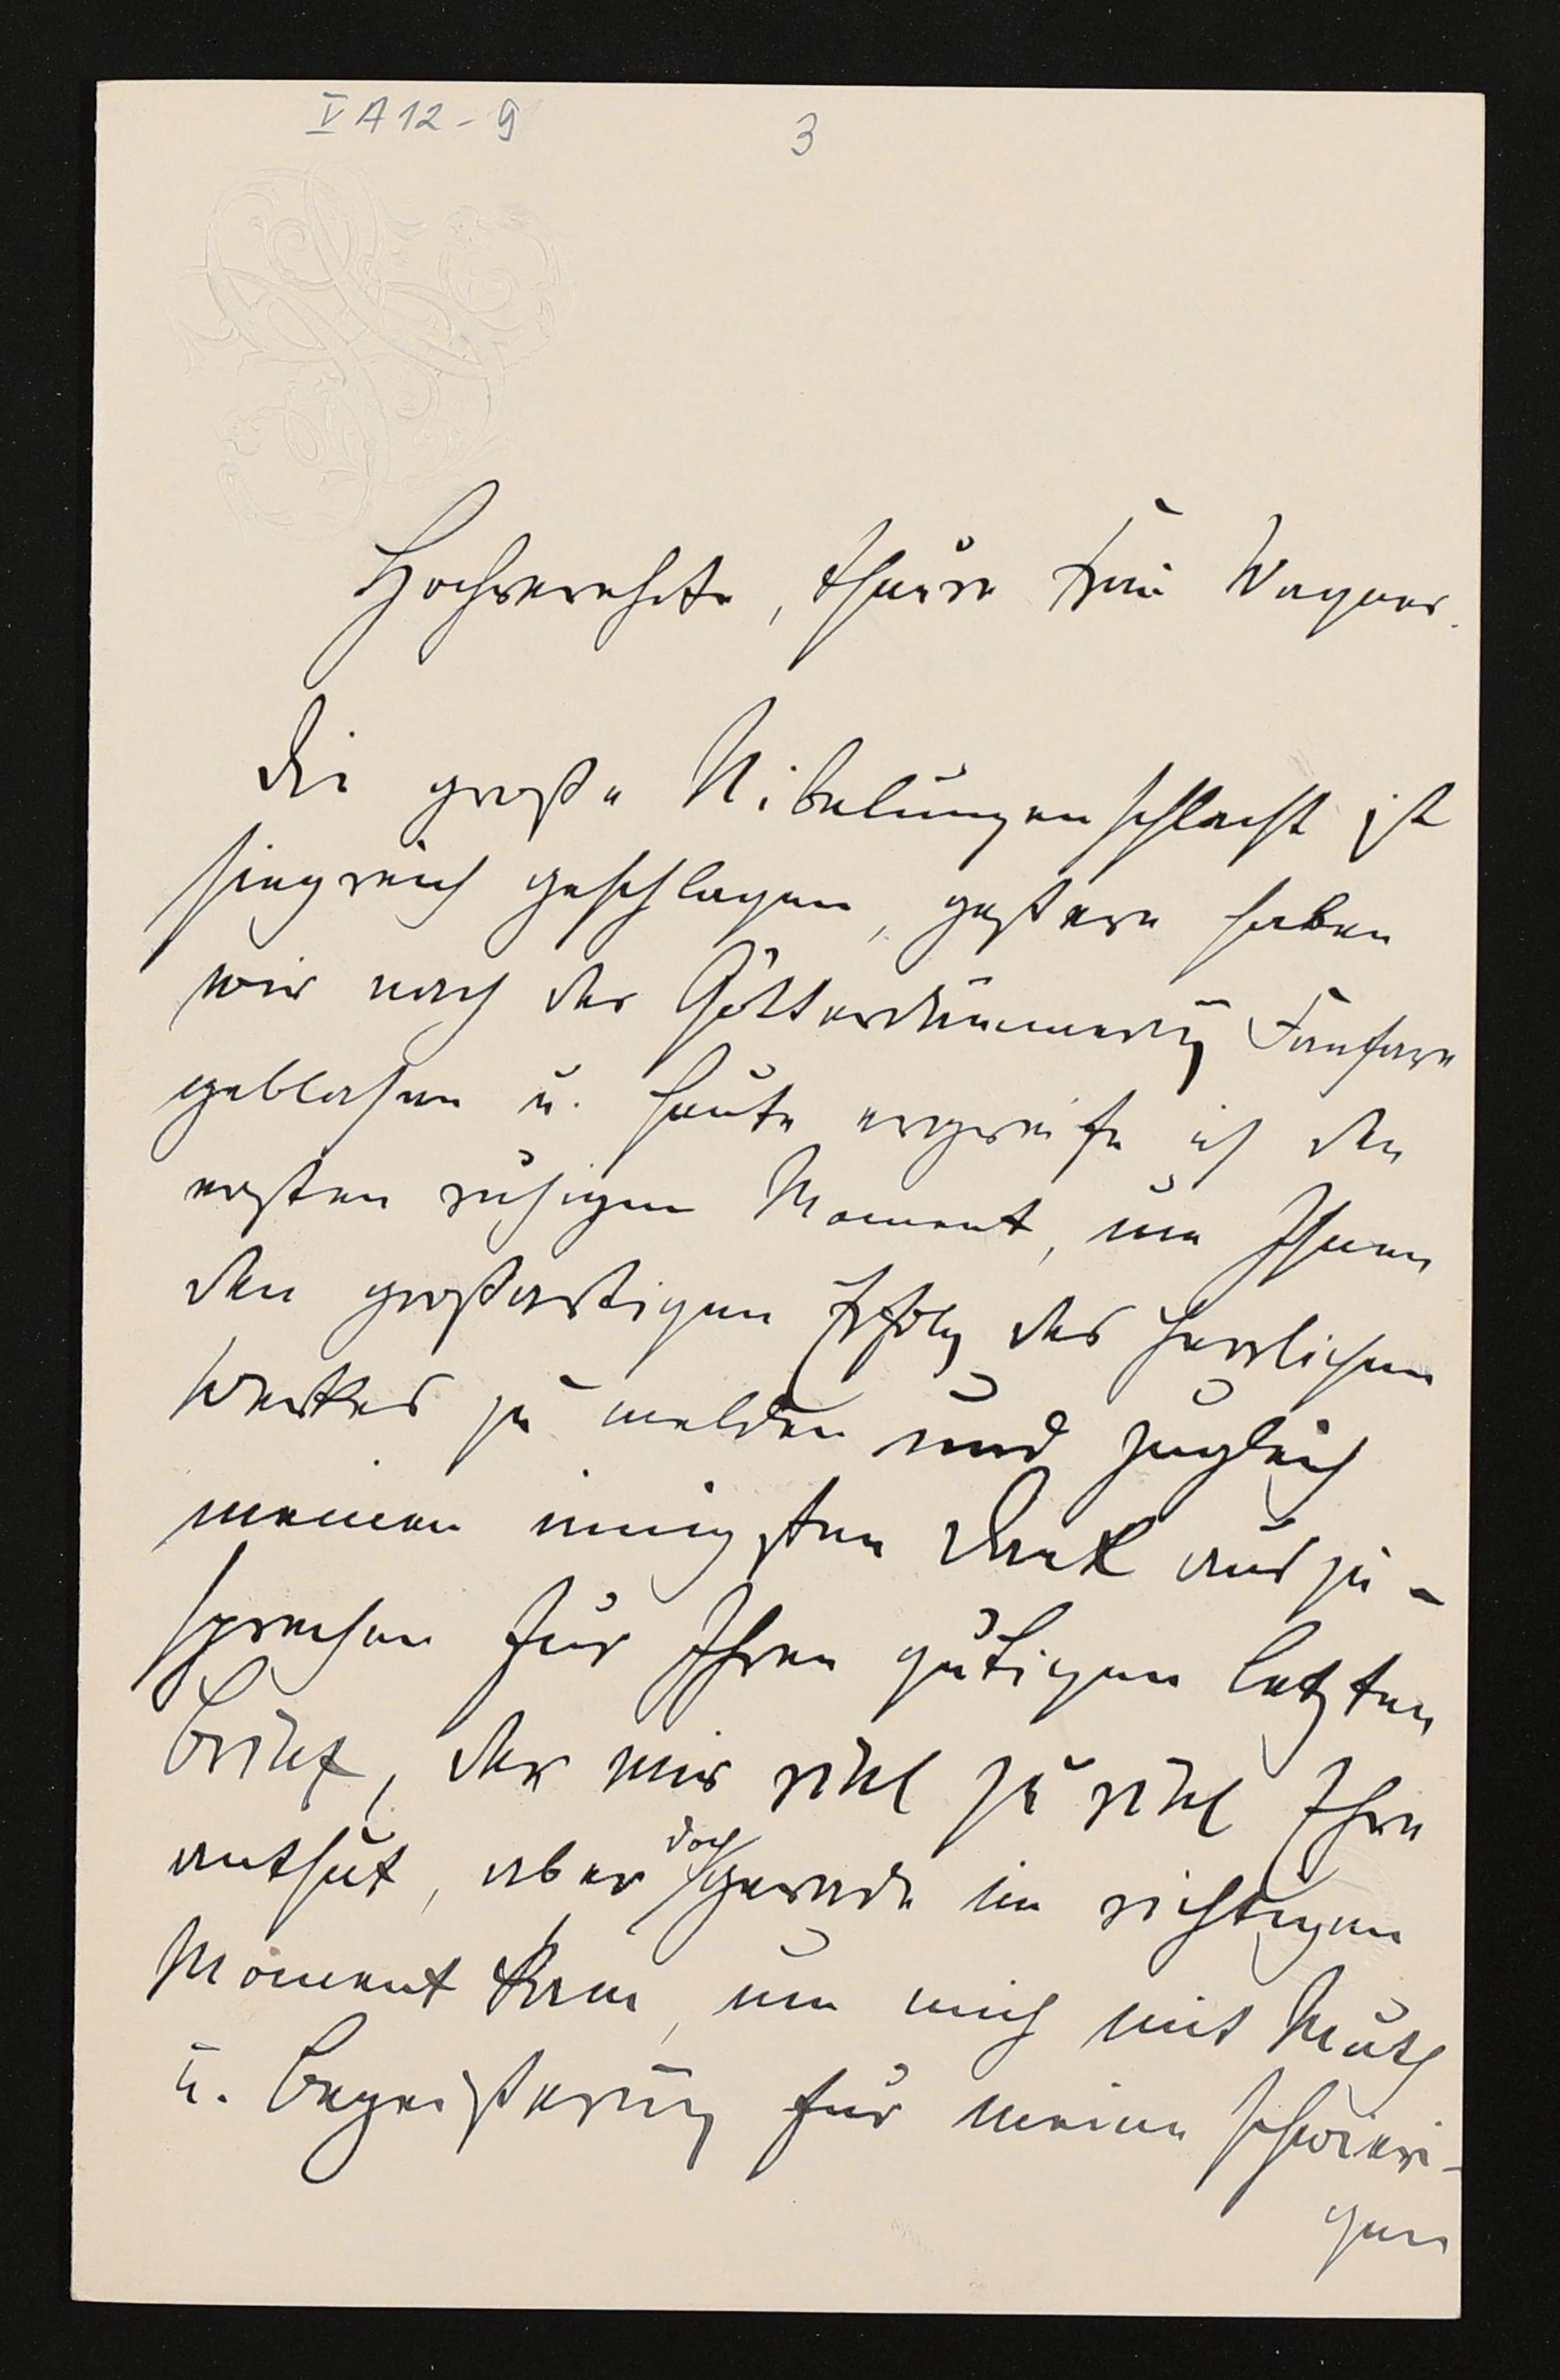 V A 12 - 9
3
Hochverehrte, theure Frau Wagner.
Die große Nibelungenschlacht ist
siegreich geschlagen, gestern haben
wir nach der Götterdämmerung Fanfare
geblasen u. heute ergreife ich den
ersten ruhigen Moment, um Ihnen
den großartigen Erfolg des herrlichen
Werkes zu melden und zugleich
meinen innigsten Dank auszu-
sprechen für Ihren gütigen letzten
Brief, der mir viel zu viel Ehre
anthut, aber doch gerade im richtigen
Moment kam, um mich mit Muth
u. Begeisterung für meine schwieri-
gen